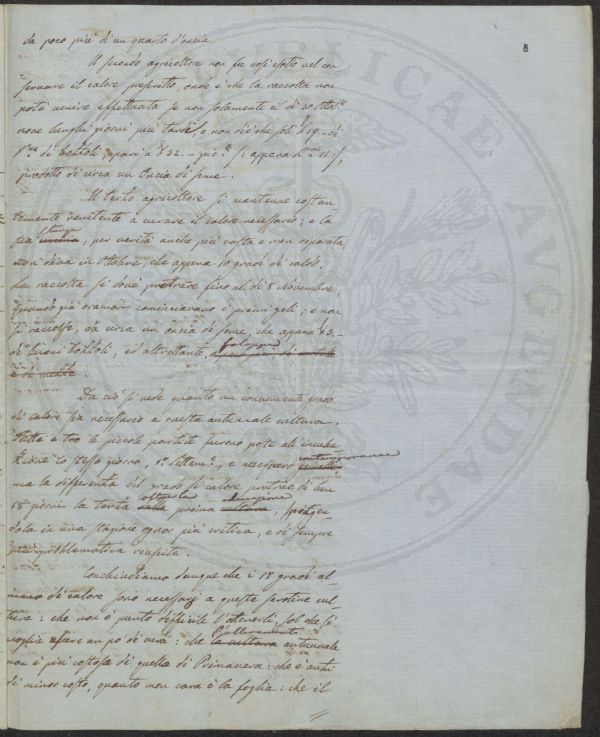 da poco più d'un quarto d'oncia.
Il secondo agricoltore non fu così esatto nel con
servare il calore prescritto, ond'è che la raccolta non
potè venire effettuata se non solamente il dì 30 Ott.e
nove lunghi giorni più tardi, e non diè che 19.- di
di bozzoli, pari a 32.- appena 11
prodotto di circa un Oncia di seme.
Il terzo agricoltore si mantenne costan
temente renitente a curare il calore necessario; e la
sua stanza, per verità anche più vasta e non riparata,
non dava in Ottobre, che appena 10 gradi di calore.
La raccolta si dovè protrarre fino al dì 8 Novembre,
quando già oramai cominciavano i primi geli; e non
si raccolse, da circa un oncia di seme, che appena 3.-
di buoni bozzoli, ed altrettante
Da ciò si vede quanto un conveniente grado
di calore sia necessario a questa autunnale cultura.
Tutte e tre le piccole partite furono poste all'incuba
zione lo stesso giorno, 1.o Settem.e, e nacquero contemporanee
ma la differenza del grado di calore protrae di ben
18 giorni la terza oltre la prima, spingen
dola in una stagione ognor più critica, e di sempre
più problematica riuscita.
Conchiudiamo dunque che i 18 gradi al-
meno di calore sono necessarj a queste serotine cul-
ture: che non è punto difficile l'ottenerli, sol che si
voglia usare un po' di cura: che l'allevamento la cultura autunnale
non è più costosa di quella di Primavera: che è anzi
di minor costo, quanto men cara è la foglia: che il
PUBLICAE
AUGENDAE